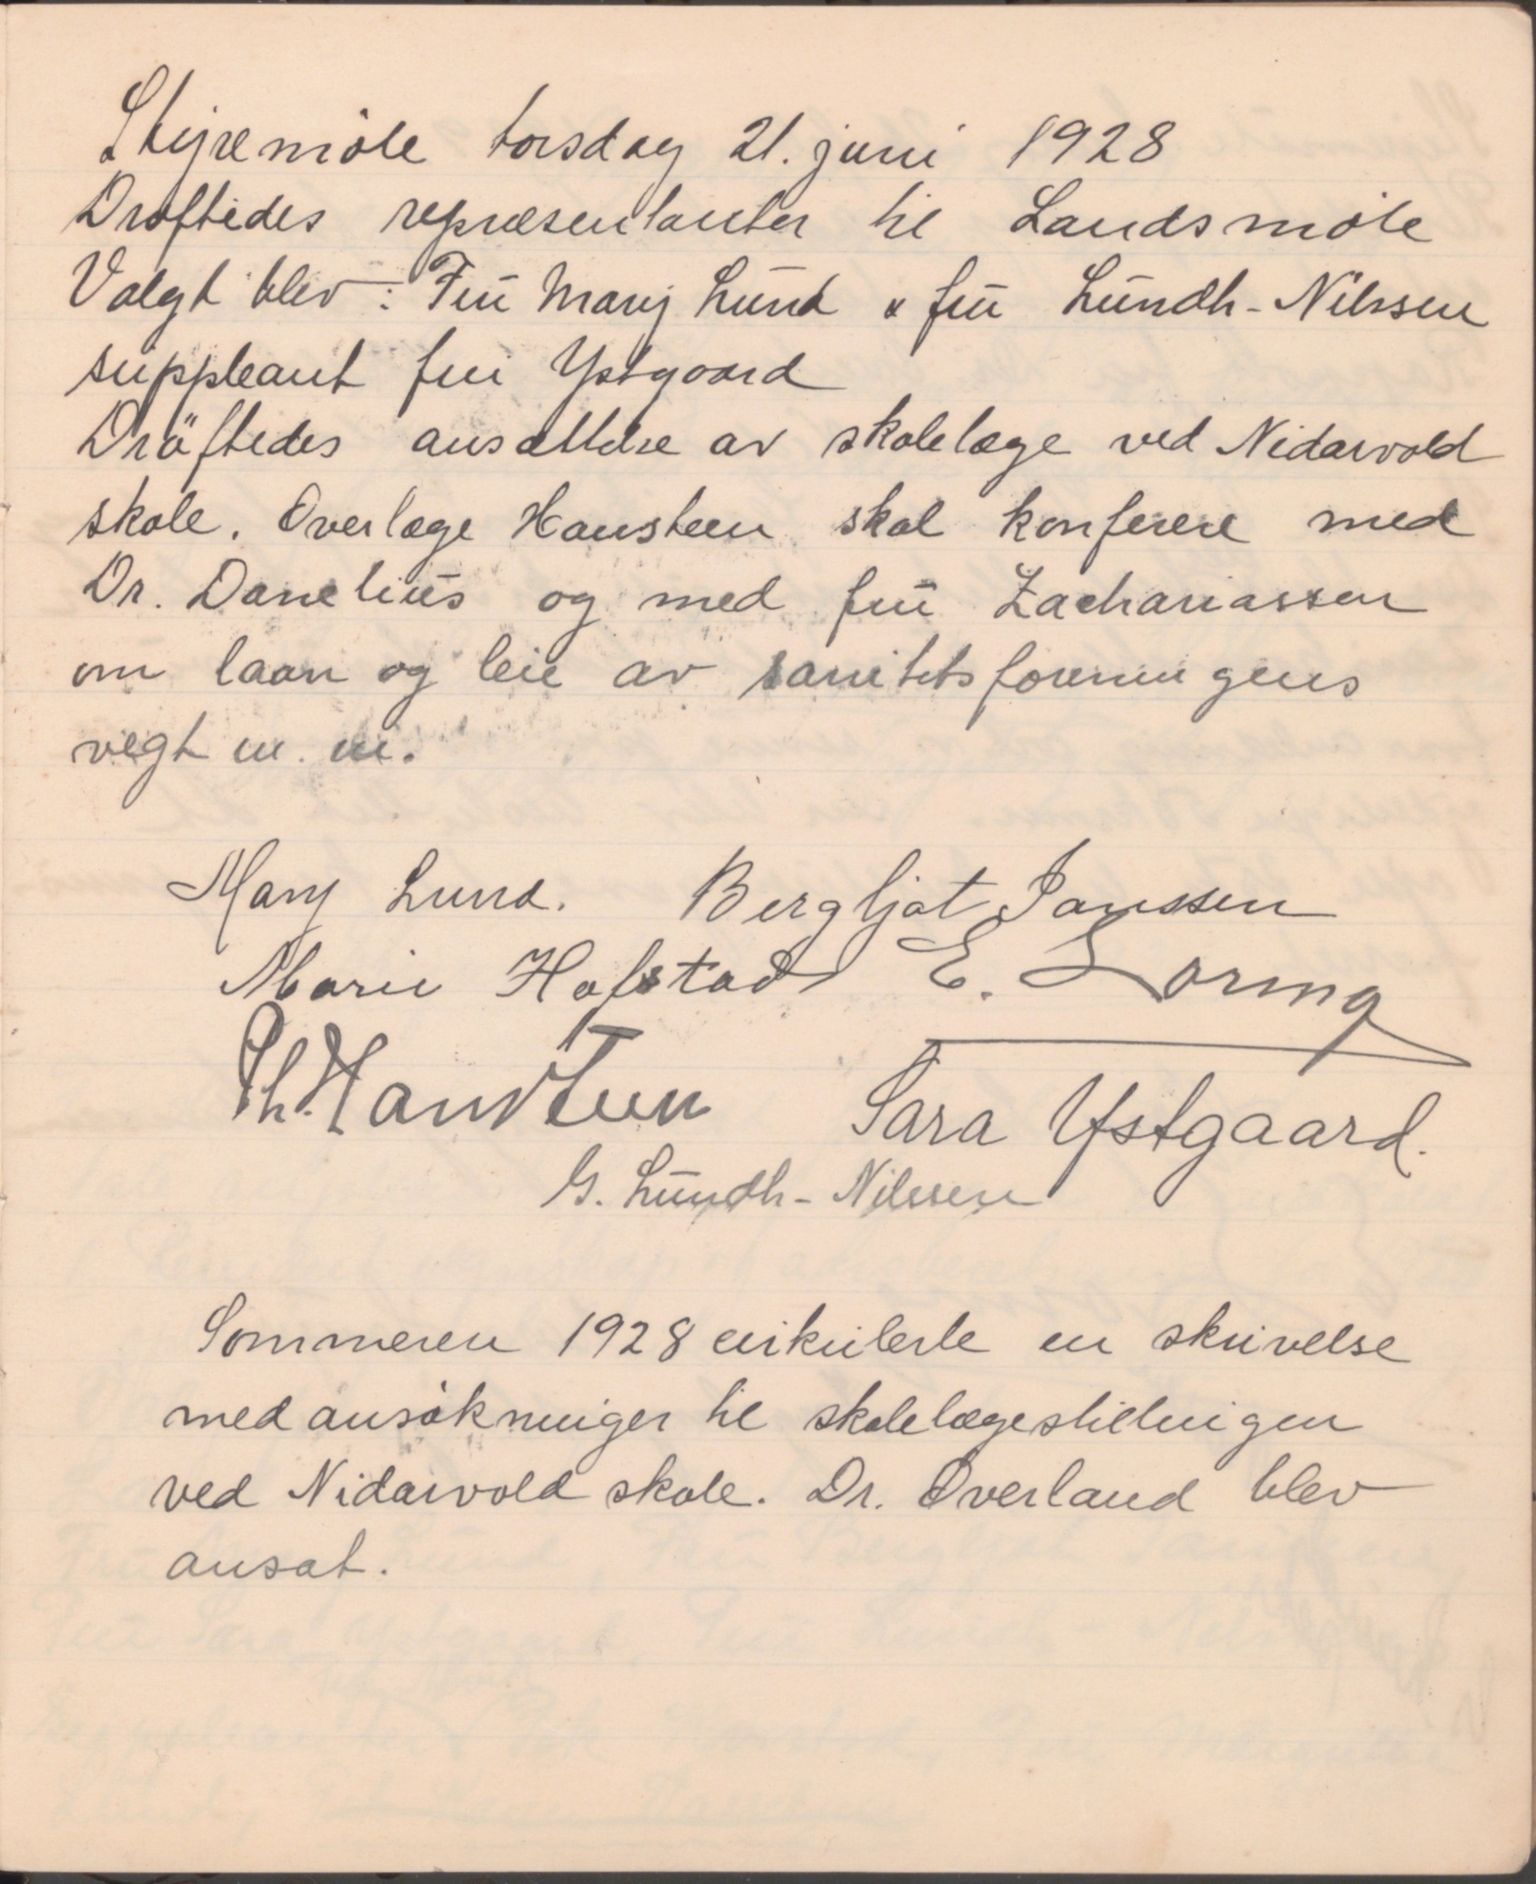 Styremöte torsdag 21. juni 1928
Drøftedes repræsentanter til Landsmöte
Valgt blev: Fru Mary Lund & fru Lundh-Nilssen
suppleant fru Ystgaard
Dröftedes ansættelse av skolelæge ved Nidarvold
skole. Overlæge Hansteen skal konferere med
Dr. Danelius og med fru Zachariassen
om laan og leie av sanitetsforeningens
vegt m. m.
Mary Lund. Bergljot Janssen
Marie Hofstad E. Loring
Th. Hansteen Sara Ystgaard.
G. Lundh-Nilssen
Sommeren 1928 cirkulerte en skrivelse
med ansökninger til skolelægestillingen
ved Nidarvold skole. Dr. Overland blev
ansat.